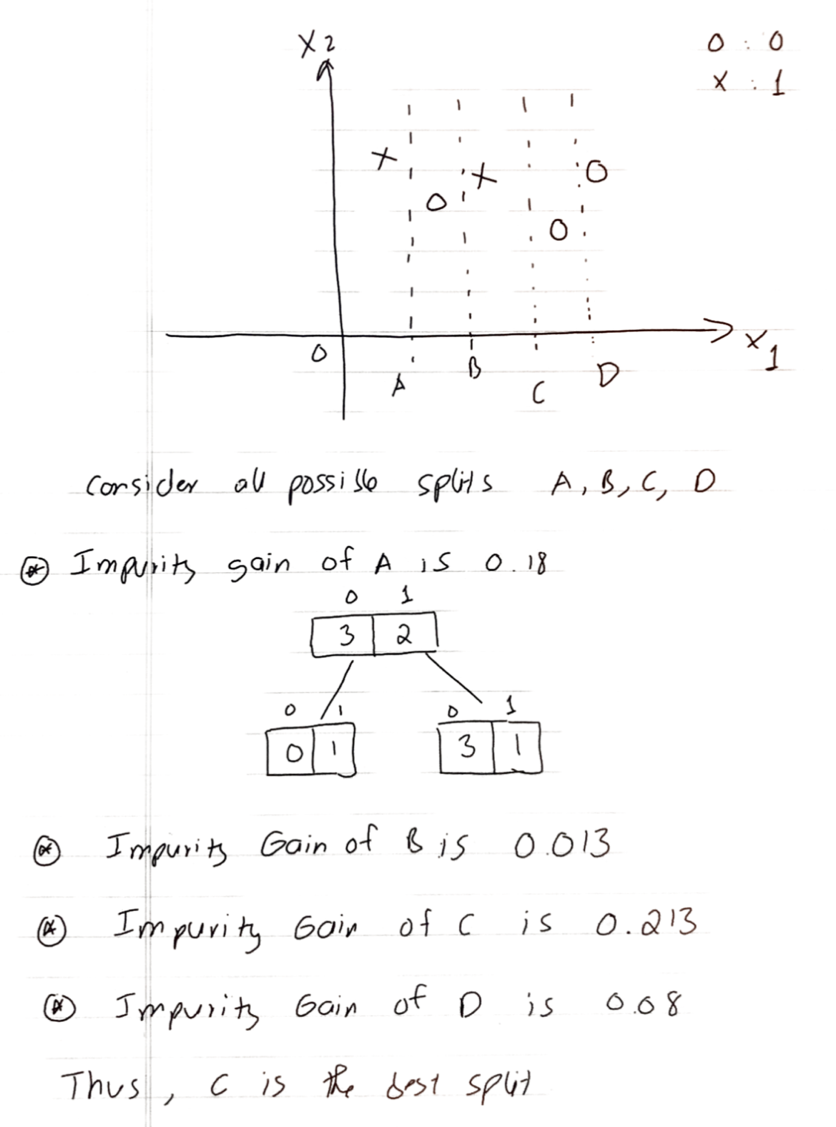 X2
O : 0
X : 1
X
X
O
O
O
0
X1
A
B
C
D
Consider all possible splits A, B, C, D
⊛ Impurity gain of A is 0.18
0 1
3 2
0 1
0 1
0 1
3 1
⊛ Impurity Gain of B is 0.013
⊛ Impurity Gain of C is 0.213
⊛ Impurity Gain of D is 0.08
Thus, C is the best split